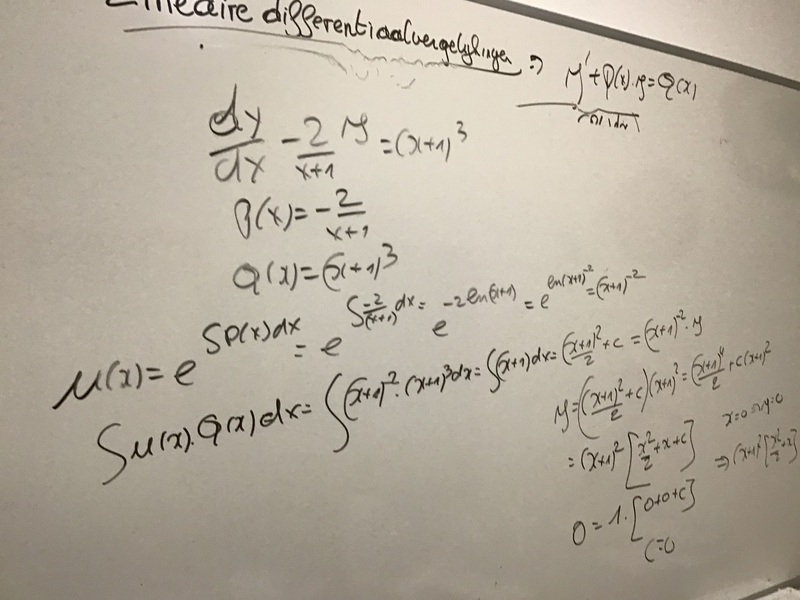 Lineaire differentiaalvergelijkingen ⇒ y' + P(x).y = Q(x)
dy/dx - 2/(x+1) y = (x+1)^3
P(x) = -2/(x+1)
Q(x) = (x+1)^3
μ(x) = e^{∫P(x)dx} = e^{∫-2/(x+1) dx} = e^{-2 ln(x+1)} = e^{ln(x+1)^{-2}} = (x+1)^{-2}
∫μ(x).Q(x)dx = ∫(x+1)^{-2}.(x+1)^3 dx = ∫(x+1)dx = (x+1)^2/2 + c = (x+1)^{-2}.y
y = ((x+1)^2/2 + c)(x+1)^2 = (x+1)^4/2 + c(x+1)^2
= (x+1)^2 [x^2/2 + x + c]
x=0 → y=0
⇒ (x+1)^2 [x^2/2 + x]
0 = 1.[0+0+c]
c=0